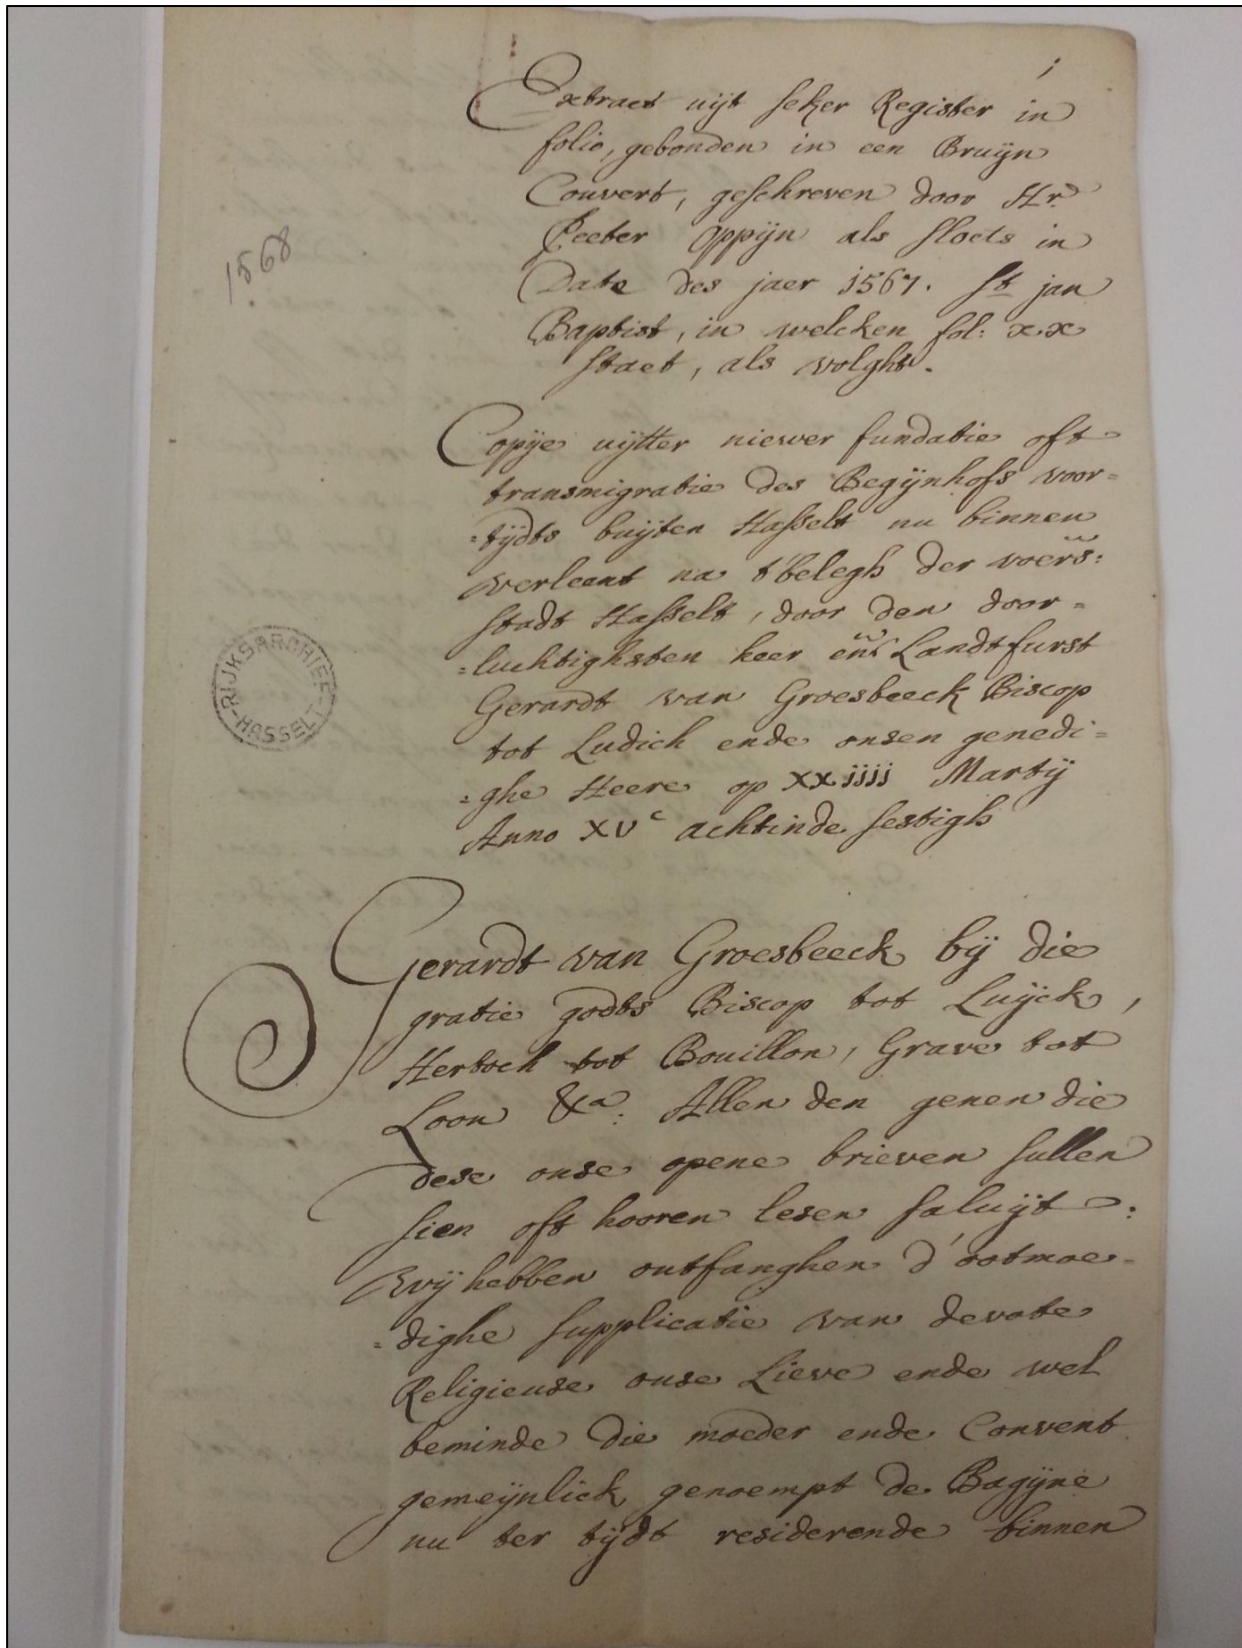 1
Extract uijt seker Register in
folio, gebonden in een Bruijn
Couvert, geschreven door Hr.
Peeter Oppijn als sloets in
Date des jaer 1567. St jan
Baptist, in welcken fol: xx
staet, als volght.
1568
Copije uijtter niewer fundatie oft
transmigratie des Begijnhofs voor=
=tijdts buijten Hasselt nu binnen
verleent na t'belegh der voers:
stadt Hasselt, door den door=
=luchtighsten heer en Landtfurst
Gerardt van Groesbeeck Biscop
tot Ludich ende onsen genedi=
=ghe Heere op XXjjjj Martij
Anno XVc achtinde sestigh
RIJKSARCHIEF
-HASSELT-
Gerardt van Groesbeeck bij die
gratie godts Biscop tot Luijck,
Hertoch tot Bouillon, Grave tot
Loon &a: Allen den genen die
dese onse opene brieven sullen
sien oft hooren lesen saluijt:
Wij hebben ontfanghen d'ootmoe=
=dighe supplicatie van devote
Religieuse onse Lieve ende wel
beminde die moeder ende Convent
gemeijnlick genoempt de Bagijne
nu ter tijdt residerende binnen